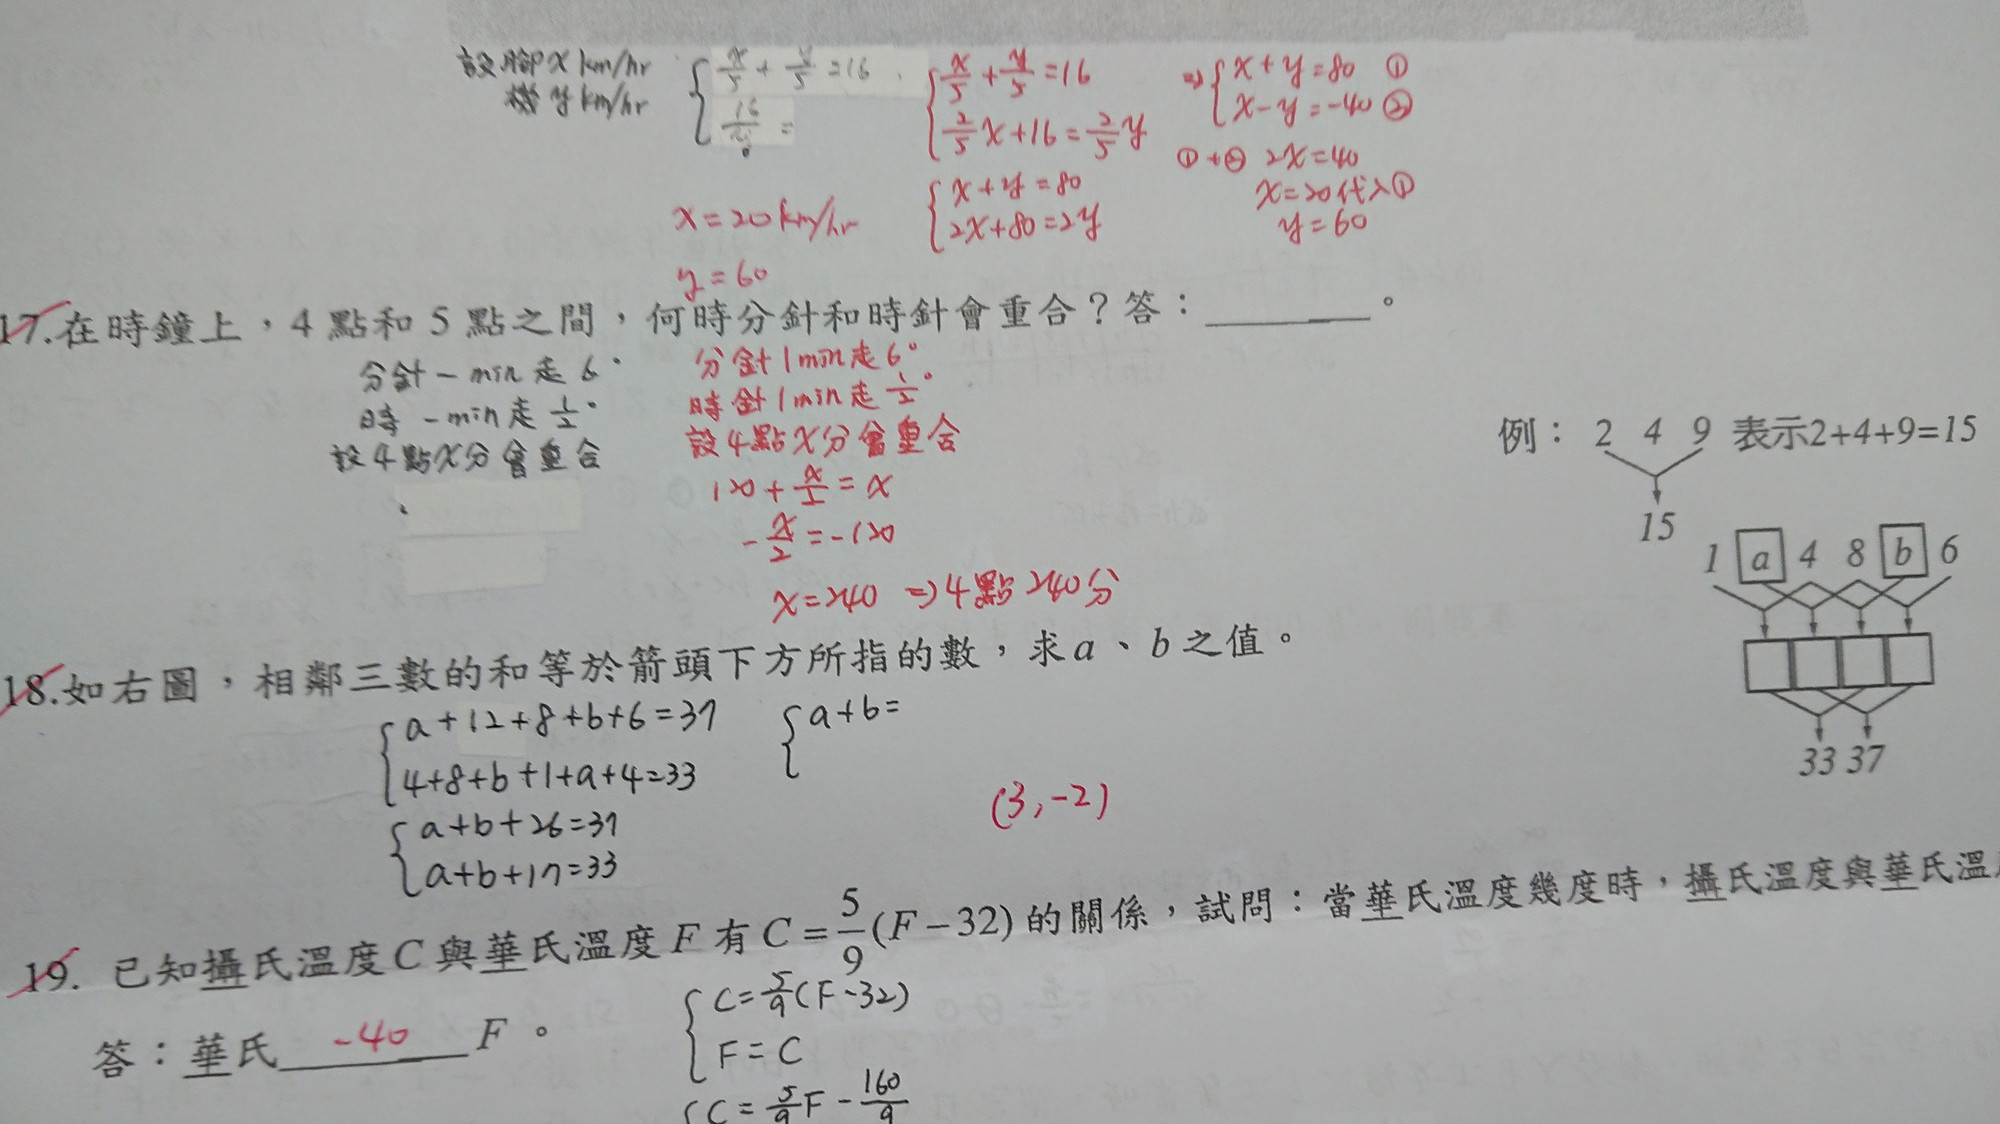 設腳x km/hr
機y km/hr
{x/5 + y/5 = 16
16/ =
{x/5 + y/5 = 16
2/5 x + 16 = 2/5 y
⇒ {x + y = 80 ①
x - y = -40 ②
{x + y = 80
2x + 80 = 2y
① + ② 2x = 40
x = 20代入①
y = 60
x = 20 km/hr
y = 60
17.在時鐘上，4點和5點之間，何時分針和時針會重合？答：________。
分針一min走6°
時 一min走1/2°
設4點x分會重合
分針1min走6°
時針1min走1/2°
設4點x分會重合
120 + x/2 = x
-x/2 = -120
x = 240 ⇒ 4點240分
例： 2 4 9 表示2+4+9=15
15
1 a 4 8 b 6
33 37
18.如右圖，相鄰三數的和等於箭頭下方所指的數，求a、b之值。
{a+12+8+b+6=37
4+8+b+1+a+4=33
{a+b=
{a+b+26=37
a+b+17=33
(3,-2)
19. 已知攝氏溫度C與華氏溫度F有C=5/9(F-32)的關係，試問：當華氏溫度幾度時，攝氏溫度與華氏溫
答：華氏 -40 F。
{C=5/9(F-32)
F=C
{C=5/9F-160/9